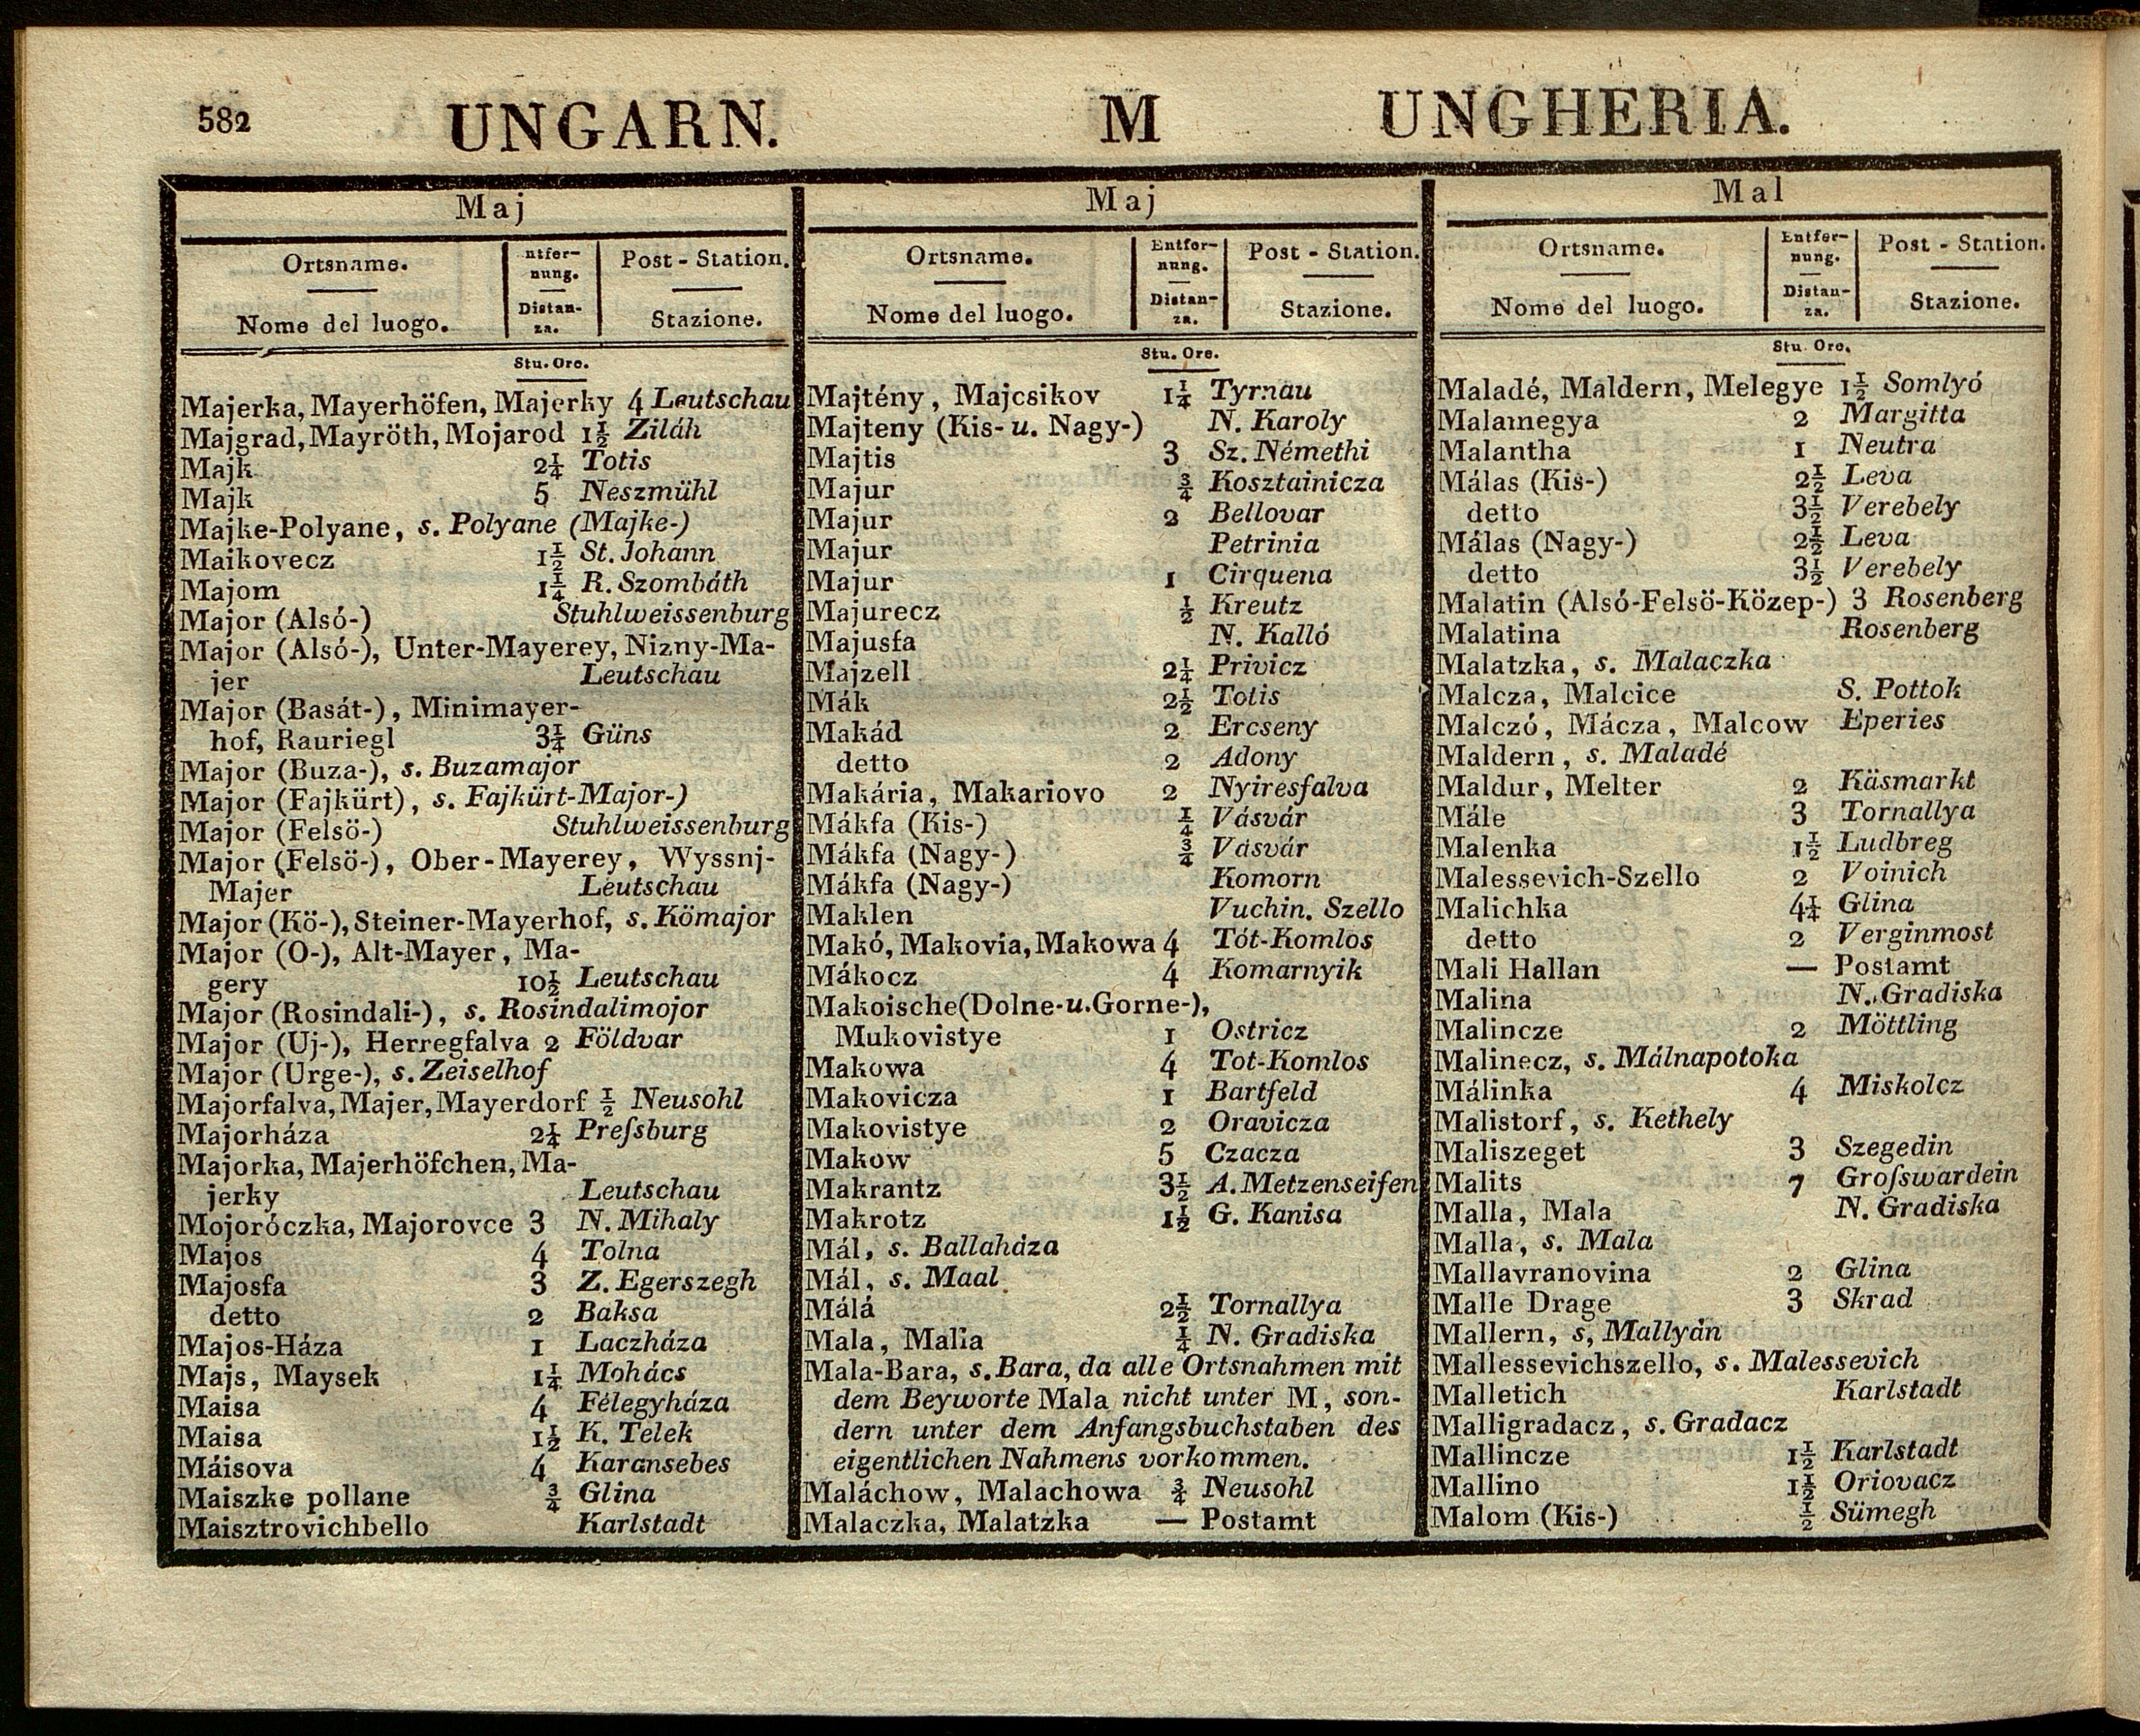 582 UNGARN. M UNGHERIA.
Maj
Ortsname. ntfer- Post - Station.
nung.
Nome del luogo. Distan- Stazione.
za.
Stu. Ore.
Majerka, Mayerhöfen, Majerky 4 Leutschau
Majgrad, Mayröth, Mojarod 1½ Ziláh
Majk 2¼ Totis
Majk 5 Neszmühl
Majke-Polyane, s. Polyane (Majke-)
Maikovecz 1½ St. Johann
Majom 1¼ R. Szombáth
Major (Alsó-) Stuhlweissenburg
Major (Alsó-), Unter-Mayerey, Nizny-Ma-
jer Leutschau
Major (Basát-), Minimayer-
hof, Rauriegl 3¼ Güns
Major (Buza-), s. Buzamajor
Major (Fajkürt), s. Fajkürt-Major-)
Major (Felsö-) Stuhlweissenburg
Major (Felsö-), Ober-Mayerey, Wyssnj-
Majer Leutschau
Major (Kö-), Steiner-Mayerhof, s. Kömajor
Major (O-), Alt-Mayer, Ma-
gery 10½ Leutschau
Major (Rosindali-), s. Rosindalimojor
Major (Uj-), Herregfalva 2 Földvar
Major (Urge-), s. Zeiselhof
Majorfalva, Majer, Mayerdorf ½ Neusohl
Majorháza 2¼ Preſsburg
Majorka, Majerhöfchen, Ma-
jerky Leutschau
Mojoróczka, Majorovce 3 N. Mihaly
Majos 4 Tolna
Majosfa 3 Z. Egerszegh
detto 2 Baksa
Majos-Háza 1 Laczháza
Majs, Maysek 1¼ Mohács
Maisa 4 Félegyháza
Maisa 1½ K. Telek
Máisova 4 Karansebes
Maiszke pollane ¾ Glina
Maisztrovichbello Karlstadt
Maj
Ortsname. Entfer- Post - Station.
nung.
Nome del luogo. Distan- Stazione.
za.
Stu. Ore.
Majtény, Majcsikov 1¼ Tyrnau
Majteny (Kis- u. Nagy-) N. Karoly
Majtis 3 Sz. Némethi
Majur ¾ Kosztainicza
Majur 2 Bellovar
Majur Petrinia
Majur 1 Cirquena
Majurecz ½ Kreutz
Majusfa N. Kalló
Majzell 2¼ Privicz
Mák 2½ Totis
Makád 2 Ercseny
detto 2 Adony
Makária, Makariovo 2 Nyiresfalva
Mákfa (Kis-) ¼ Vásvár
Mákfa (Nagy-) ¾ Vásvár
Mákfa (Nagy-) Komorn
Maklen Vuchin. Szello
Makó, Makovia, Makowa 4 Tót-Komlos
Mákocz 4 Komarnyik
Makoische (Dolne- u. Gorne-),
Mukovistye 1 Ostricz
Makowa 4 Tot-Komlos
Makovicza 1 Bartfeld
Makovistye 2 Oravicza
Makow 5 Czacza
Makrantz 3½ A. Metzenseifen
Makrotz 1½ G. Kanisa
Mál, s. Ballaháza
Mál, s. Maal
Málá 2½ Tornallya
Mala, Malla ¼ N. Gradiska
Mala-Bara, s. Bara, da alle Ortsnahmen mit
dem Beyworte Mala nicht unter M, son-
dern unter dem Anfangsbuchstaben des
eigentlichen Nahmens vorkommen.
Maláchow, Malachowa ¾ Neusohl
Malaczka, Malatzka — Postamt
Mal
Ortsname. Entfer- Post - Station.
nung.
Nome del luogo. Distan- Stazione.
za.
Stu. Ore.
Maladé, Maldern, Melegye 1½ Somlyó
Malamegya 2 Margitta
Malantha 1 Neutra
Málas (Kis-) 2½ Leva
detto 3½ Verebely
Málas (Nagy-) 2½ Leva
detto 3½ Verebely
Malatin (Alsó-Felsö-Közep-) 3 Rosenberg
Malatina Rosenberg
Malatzka, s. Malaczka
Malcza, Malcice S. Pottok
Malczó, Mácza, Malcow Eperies
Maldern, s. Maladé
Maldur, Melter 2 Käsmarkt
Mále 3 Tornallya
Malenka 1½ Ludbreg
Malessevich-Szello 2 Voinich
Malichka 4¼ Glina
detto 2 Verginmost
Mali Hallan — Postamt
Malina N. Gradiska
Malincze 2 Möttling
Malinecz, s. Málnapotoka
Málinka 4 Miskolcz
Malistorf, s. Kethely
Maliszeget 3 Szegedin
Malits 7 Groſswardein
Malla, Mala N. Gradiska
Malla, s. Mala
Mallavranovina 2 Glina
Malle Drage 3 Skrad
Mallern, s, Mallyán
Mallessevichszello, s. Malessevich
Malletich Karlstadt
Malligradacz, s. Gradacz
Mallincze 1½ Karlstadt
Mallino 1½ Oriovacz
Malom (Kis-) ½ Sümegh